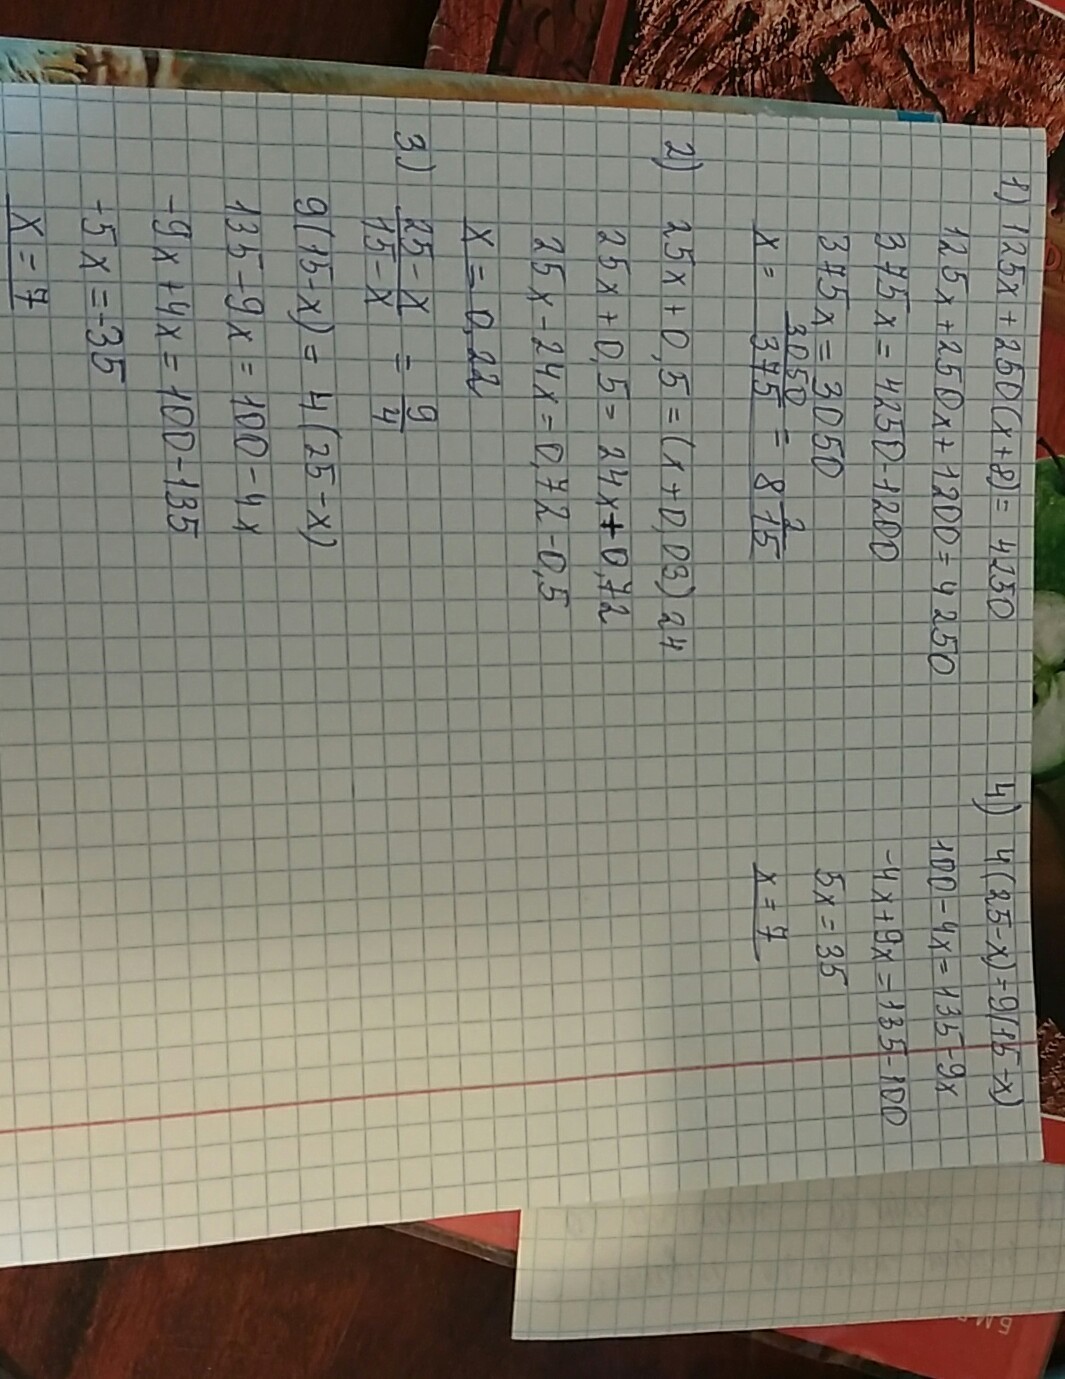 1) 125x + 250(x+8) = 4250
125x + 250x + 1200 = 4250
375x = 4250 - 1200
375x = 3050
x = 3050/375 = 8 2/15
2) 25x + 0,5 = (x + 0,03) 24
25x + 0,5 = 24x + 0,72
25x - 24x = 0,72 - 0,5
x = 0,22
3) 25-x/15-x = 9/4
9(15-x) = 4(25-x)
135 - 9x = 100 - 4x
-9x + 4x = 100 - 135
-5x = -35
x = 7
4) 4(25-x) = 9(15-x)
100 - 4x = 135 - 9x
-4x + 9x = 135 - 100
5x = 35
x = 7